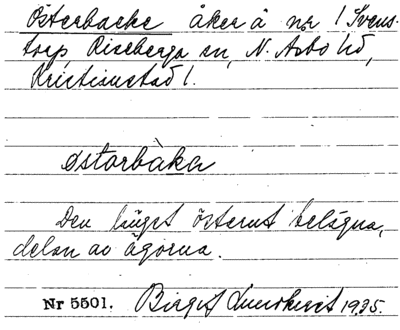 Österbacke åker å nr 1 Svens-
torp, Riseberga sn, N. Åsbo hd,
Kristianstad l.
østarbàka
Den längst österut belägna,
delen av ägorna.
Nr 5501. Birgit Lundkvist 1935.